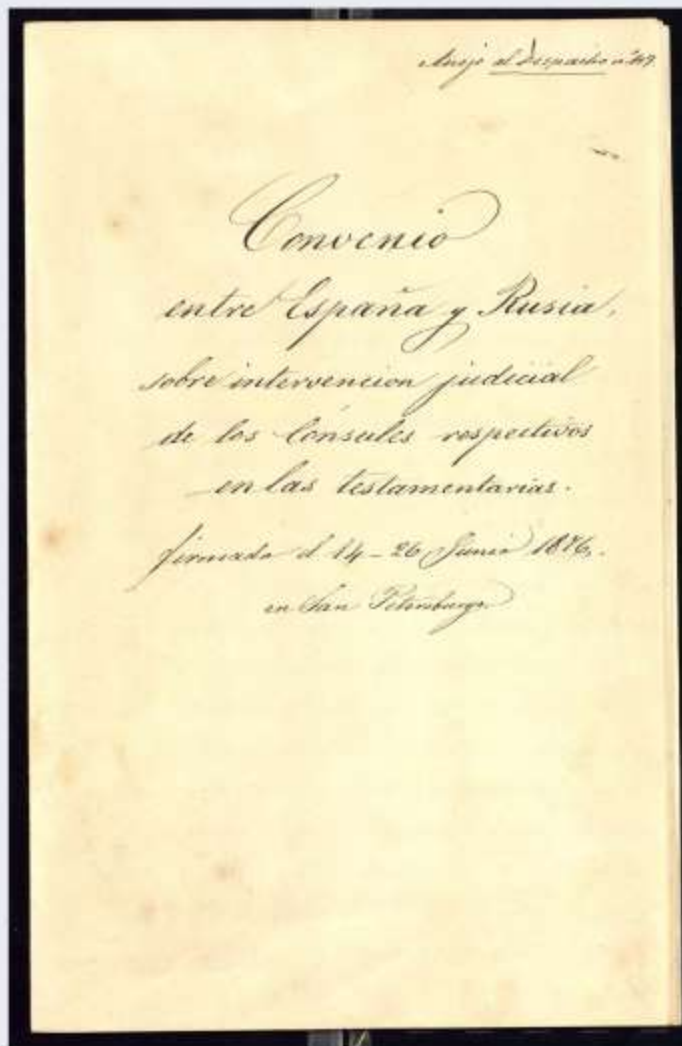 Anejo al Despacho nº 119.
Convenio
entre España y Rusia,
sobre intervencion judicial
de los Cónsules respectivos
en las testamentarias.
firmado el 14-26 Junio 1876.
en San Petersburgo